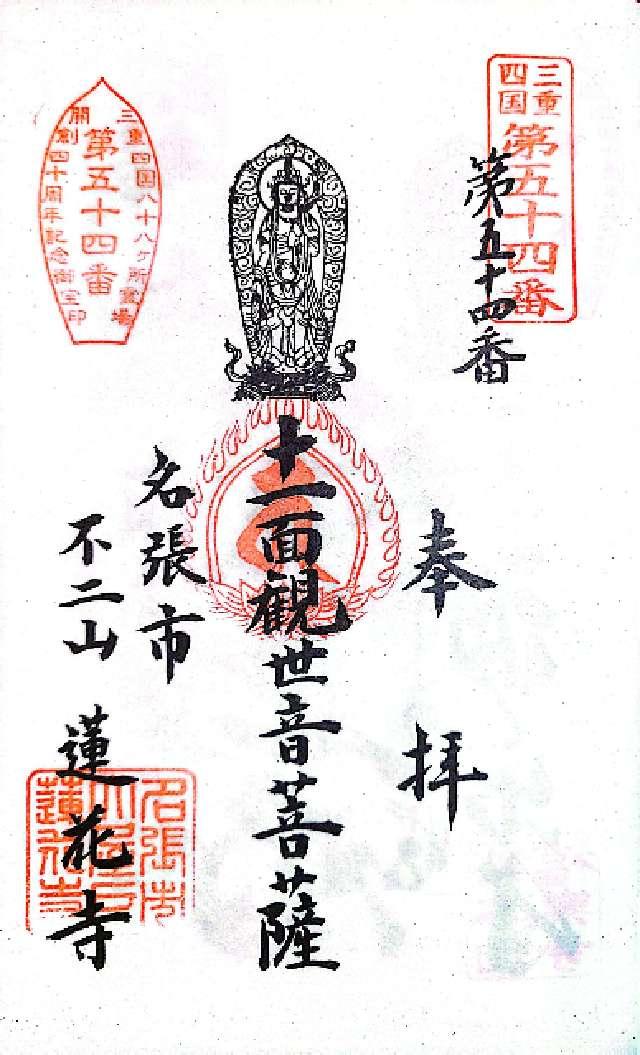 三重
四国
第五十四番
第五十四番
奉拝
十一面観世音菩薩
三重四国八十八ヶ所霊場
第五十四番
開創四十周年記念御宝印
名張市
不二山 蓮花寺
名張市
蓮花寺